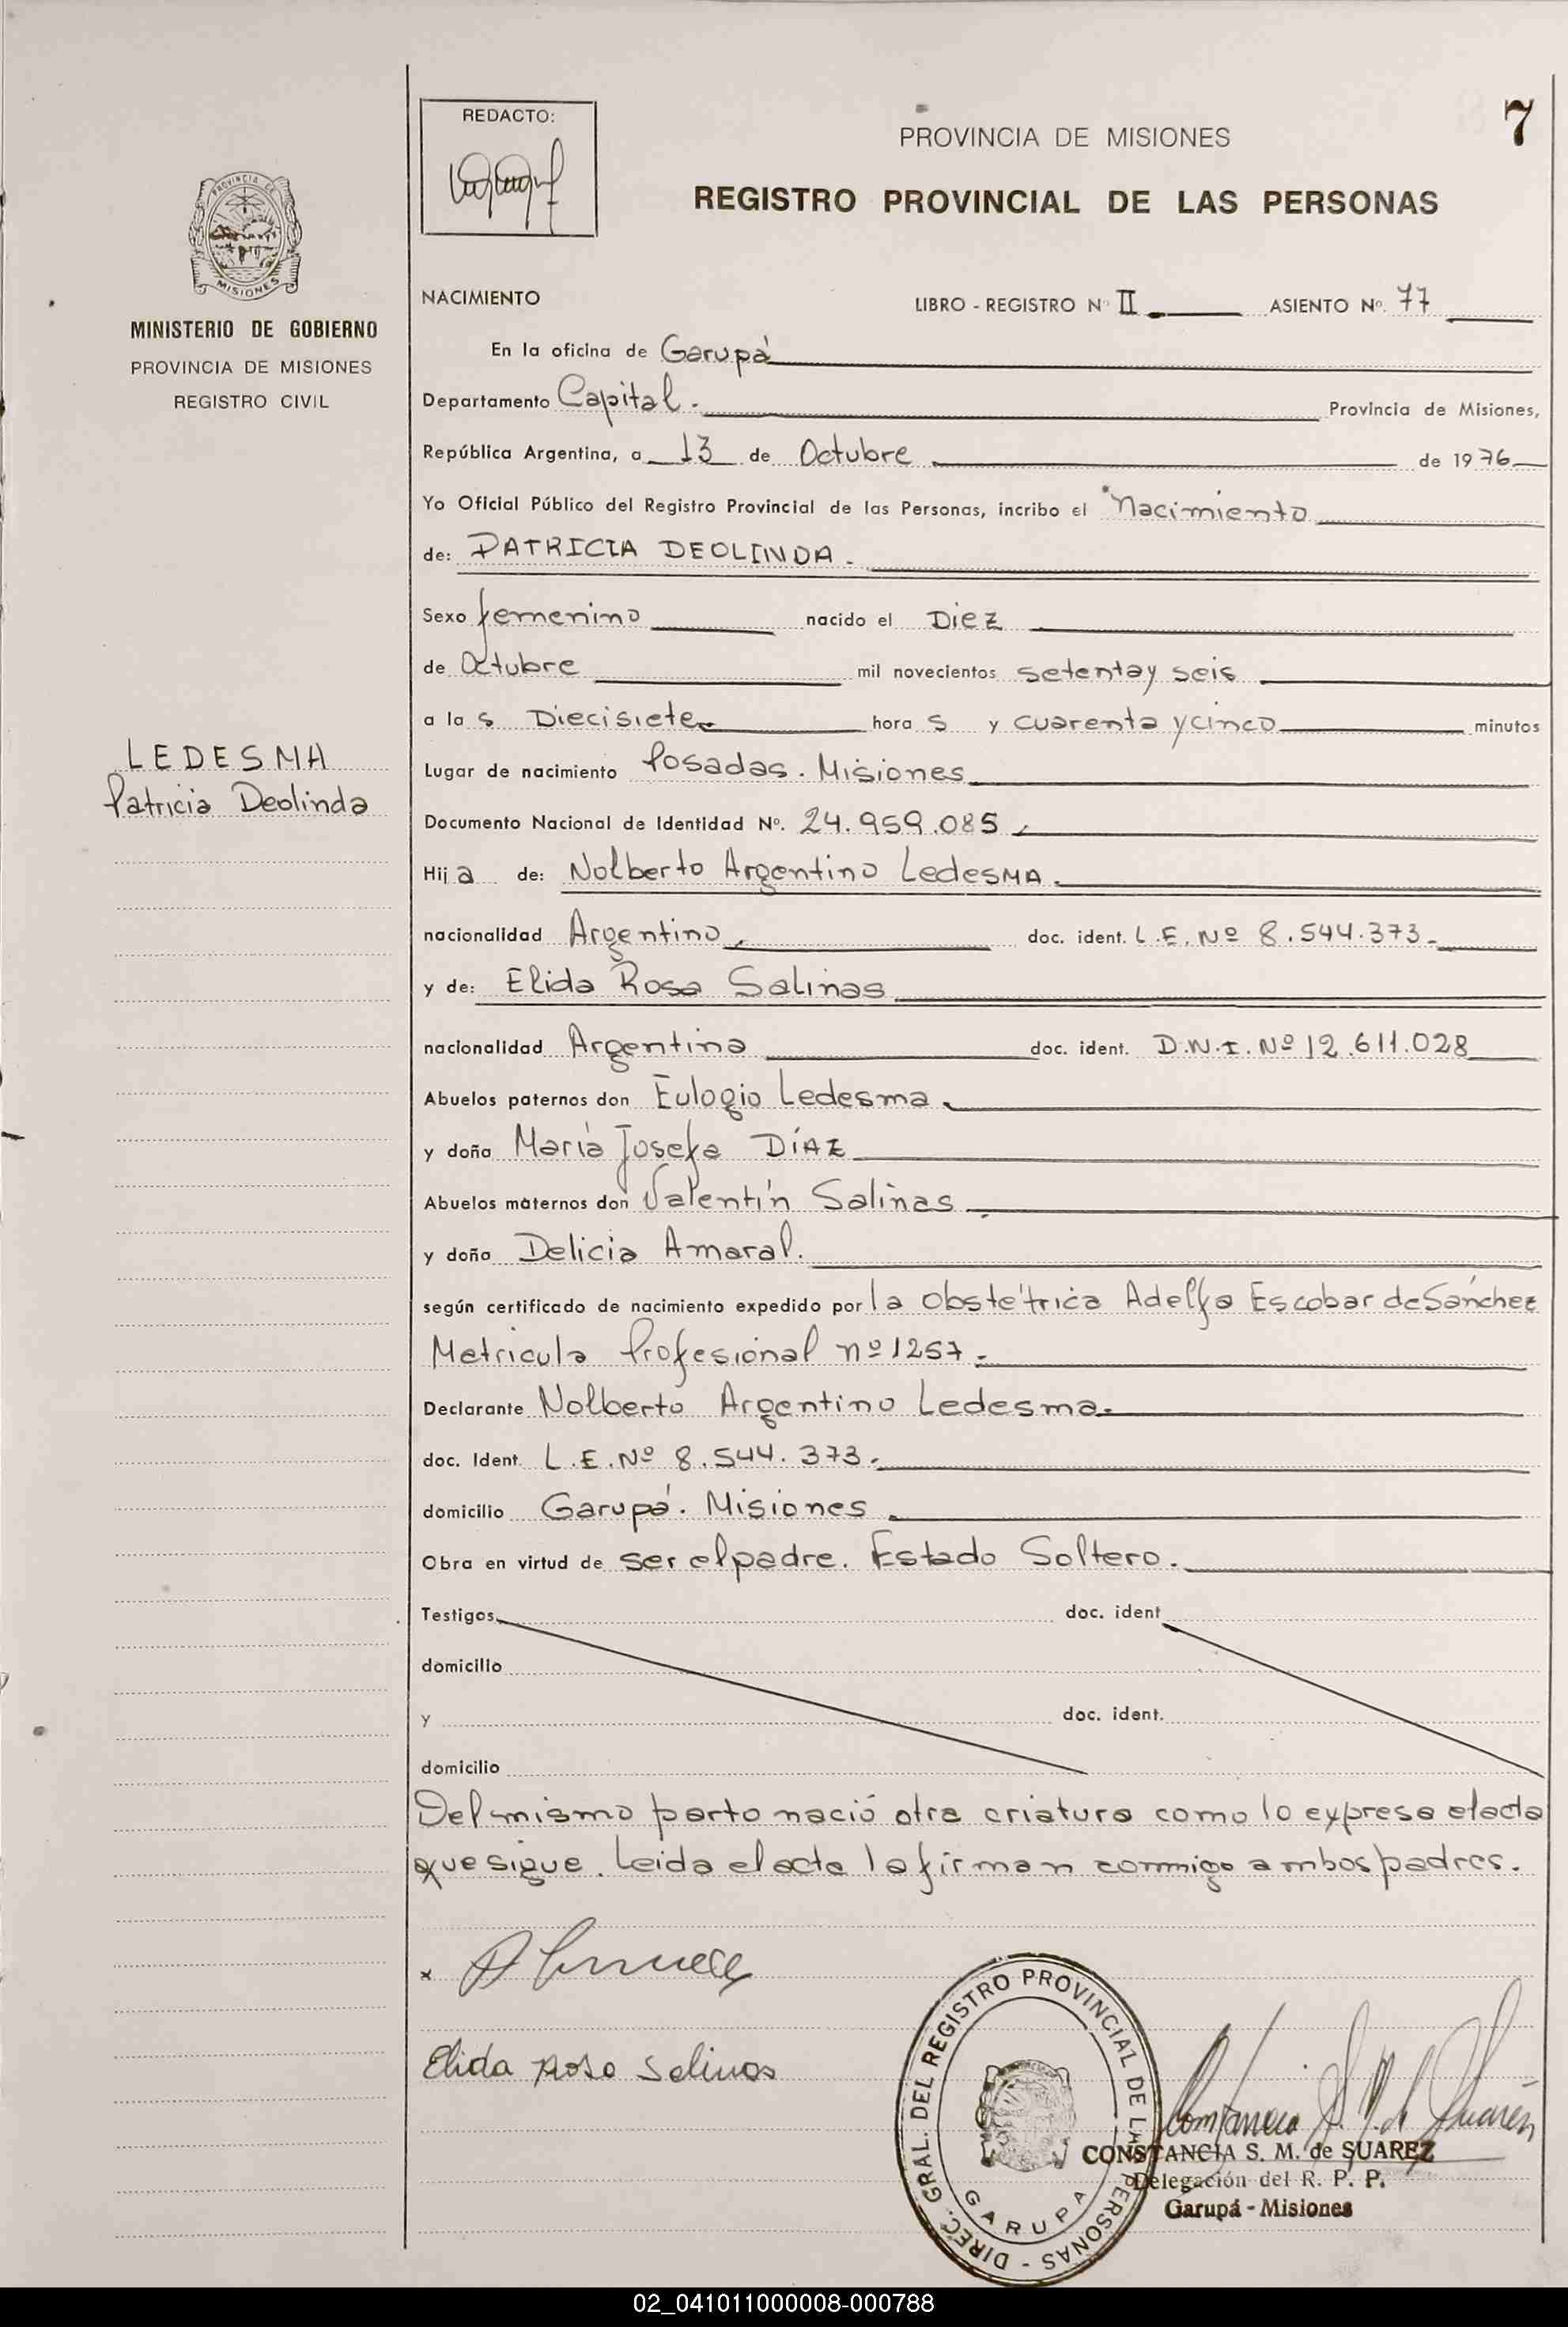 REDACTO:
PROVINCIA DE MISIONES
7
REGISTRO PROVINCIAL DE LAS PERSONAS
PROVINCIA DE
MISIONES
MINISTERIO DE GOBIERNO
PROVINCIA DE MISIONES
REGISTRO CIVIL
NACIMIENTO LIBRO - REGISTRO Nº II ASIENTO Nº. 77
En la oficina de Garupá
Departamento Capital. Provincia de Misiones,
República Argentina, a 13 de Octubre de 1976
Yo Oficial Público del Registro Provincial de las Personas, incribo el Nacimiento
de: PATRICIA DEOLINDA.
Sexo femenino nacido el Diez
de Octubre mil novecientos setenta y seis
a las Diecisiete horas y cuarenta y cinco minutos
LEDESMA
Patricia Deolinda
Lugar de nacimiento Posadas. Misiones
Documento Nacional de Identidad Nº. 24.959.085
Hija de: Nolberto Argentino LedesMA.
nacionalidad Argentino. doc. ident. L.E. Nº 8.544.373-
y de: Elida Rosa Salinas
nacionalidad Argentina doc. ident. D.N.I. Nº 12.611.028
Abuelos paternos don Eulogio Ledesma
y doña María Josefa DÍAZ
Abuelos maternos don Valentín Salinas
y doña Delicia Amaral.
según certificado de nacimiento expedido por la Obstétrica Adelfa Escobar de Sánchez
Matricula Profesional nº 1257.-
Declarante Nolberto Argentino Ledesma.
doc. Ident. L.E. Nº 8.544.373.
domicilio Garupá. Misiones
Obra en virtud de ser el padre. Estado Soltero.
Testigos doc. ident
domicilio
y doc. ident.
domicilio
Del mismo parto nació otra criatura como lo expresa el acta
que sigue. Leida el acta la firman conmigo ambos padres.
x
Elida Rosa Salinas
DIREC. GRAL. DEL REGISTRO PROVINCIAL DE LAS PERSONAS -
GARUPA
CONSTANCIA S. M. de SUAREZ
Delegación del R. P. P.
Garupá - Misiones
02_041011000008-000788